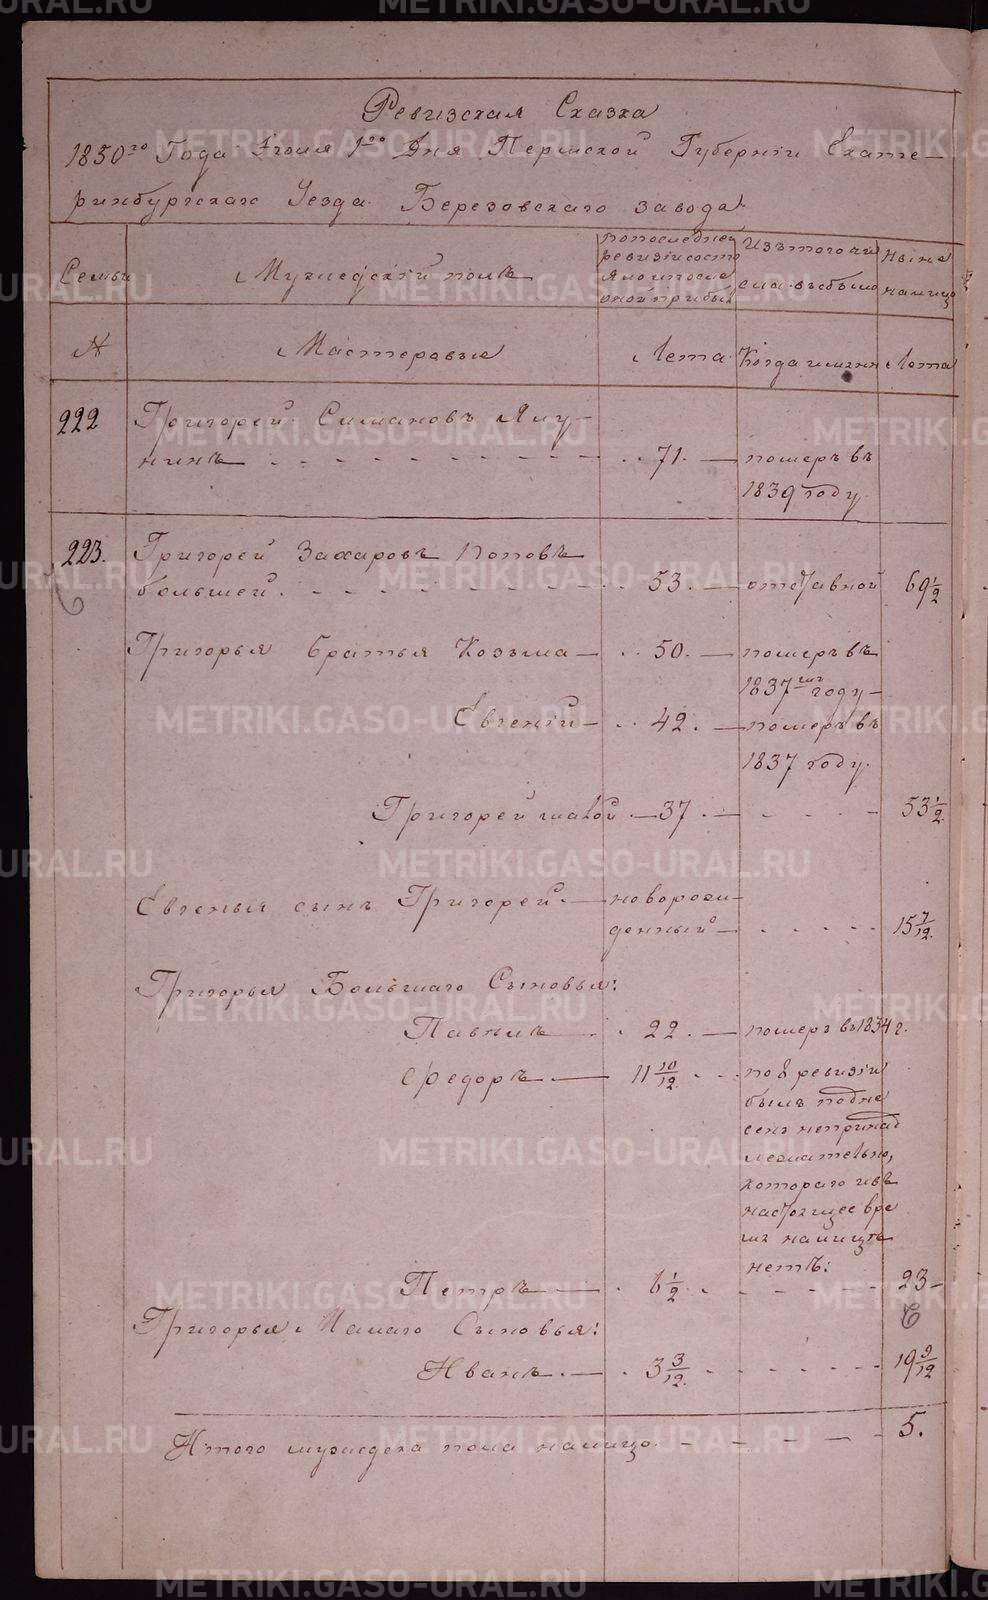 Ревизская Сказка
1850го Года Іюля 1го Дня Пермской Губерніи Екате-
ринбургскаго Уезда Березовскаго завода
Семьи
Мужескій полъ
попоследней
ревизіи состо
яло и после
оной прибыло
Изъ того чи
сла выбыло
Ныне
на лицо
№
Мастеровые
Лета
Когда именно
Лета
222
Григорей Симановъ Яму-
нинъ 71. померъ въ
1839 году.
223. Григорей Захаровъ Поповъ
большей. 53. отставной 69 1/2
Григорья братья Козьма 50. померъ въ
1837мъ году
Евгений 42. померъ въ
1837 году.
Григорей малой 37 53 1/2
Евгенья сынъ Григорей. новорож-
денный 15 7/12.
Григорья Большаго Сыновья:
Павелъ 22. померъ въ 1834 г.
Федоръ 11 10/12. по 8 ревизіи
былъ подне
сенъ непринад
лежательно,
котораго и въ
настоящее вре
мя налицѣ
нетъ:
Петръ 6 1/2. 23
Григорья Малаго Сыновья:
Иванъ 3 3/12. 19 9/12
Итого мужеска пола налицо 5.
METRIKI.GASO-URAL.RU